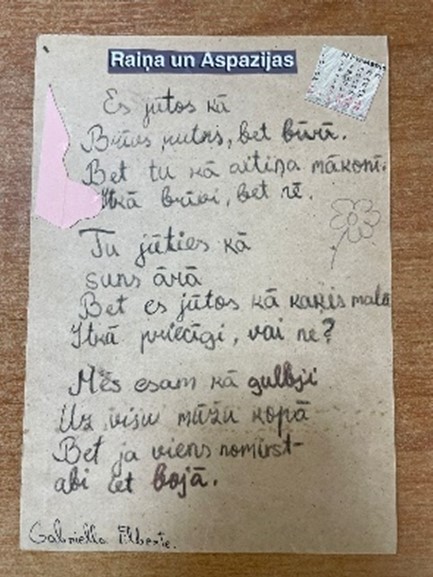 Raiņa un Aspazijas
Es jūtos kā
Brīvs putns, bet būrī.
Bet tu kā aitiņa mākonī.
Itkā brīvi, bet nē.
Tu jūties kā
suns ārā
Bet es jūtos kā kaķis malā
Itkā priecīgi, vai ne?
Mēs esam kā gulbji
Uz visu mūžu kopā
Bet ja viens nomirst
abi iet bojā.
Gabriella